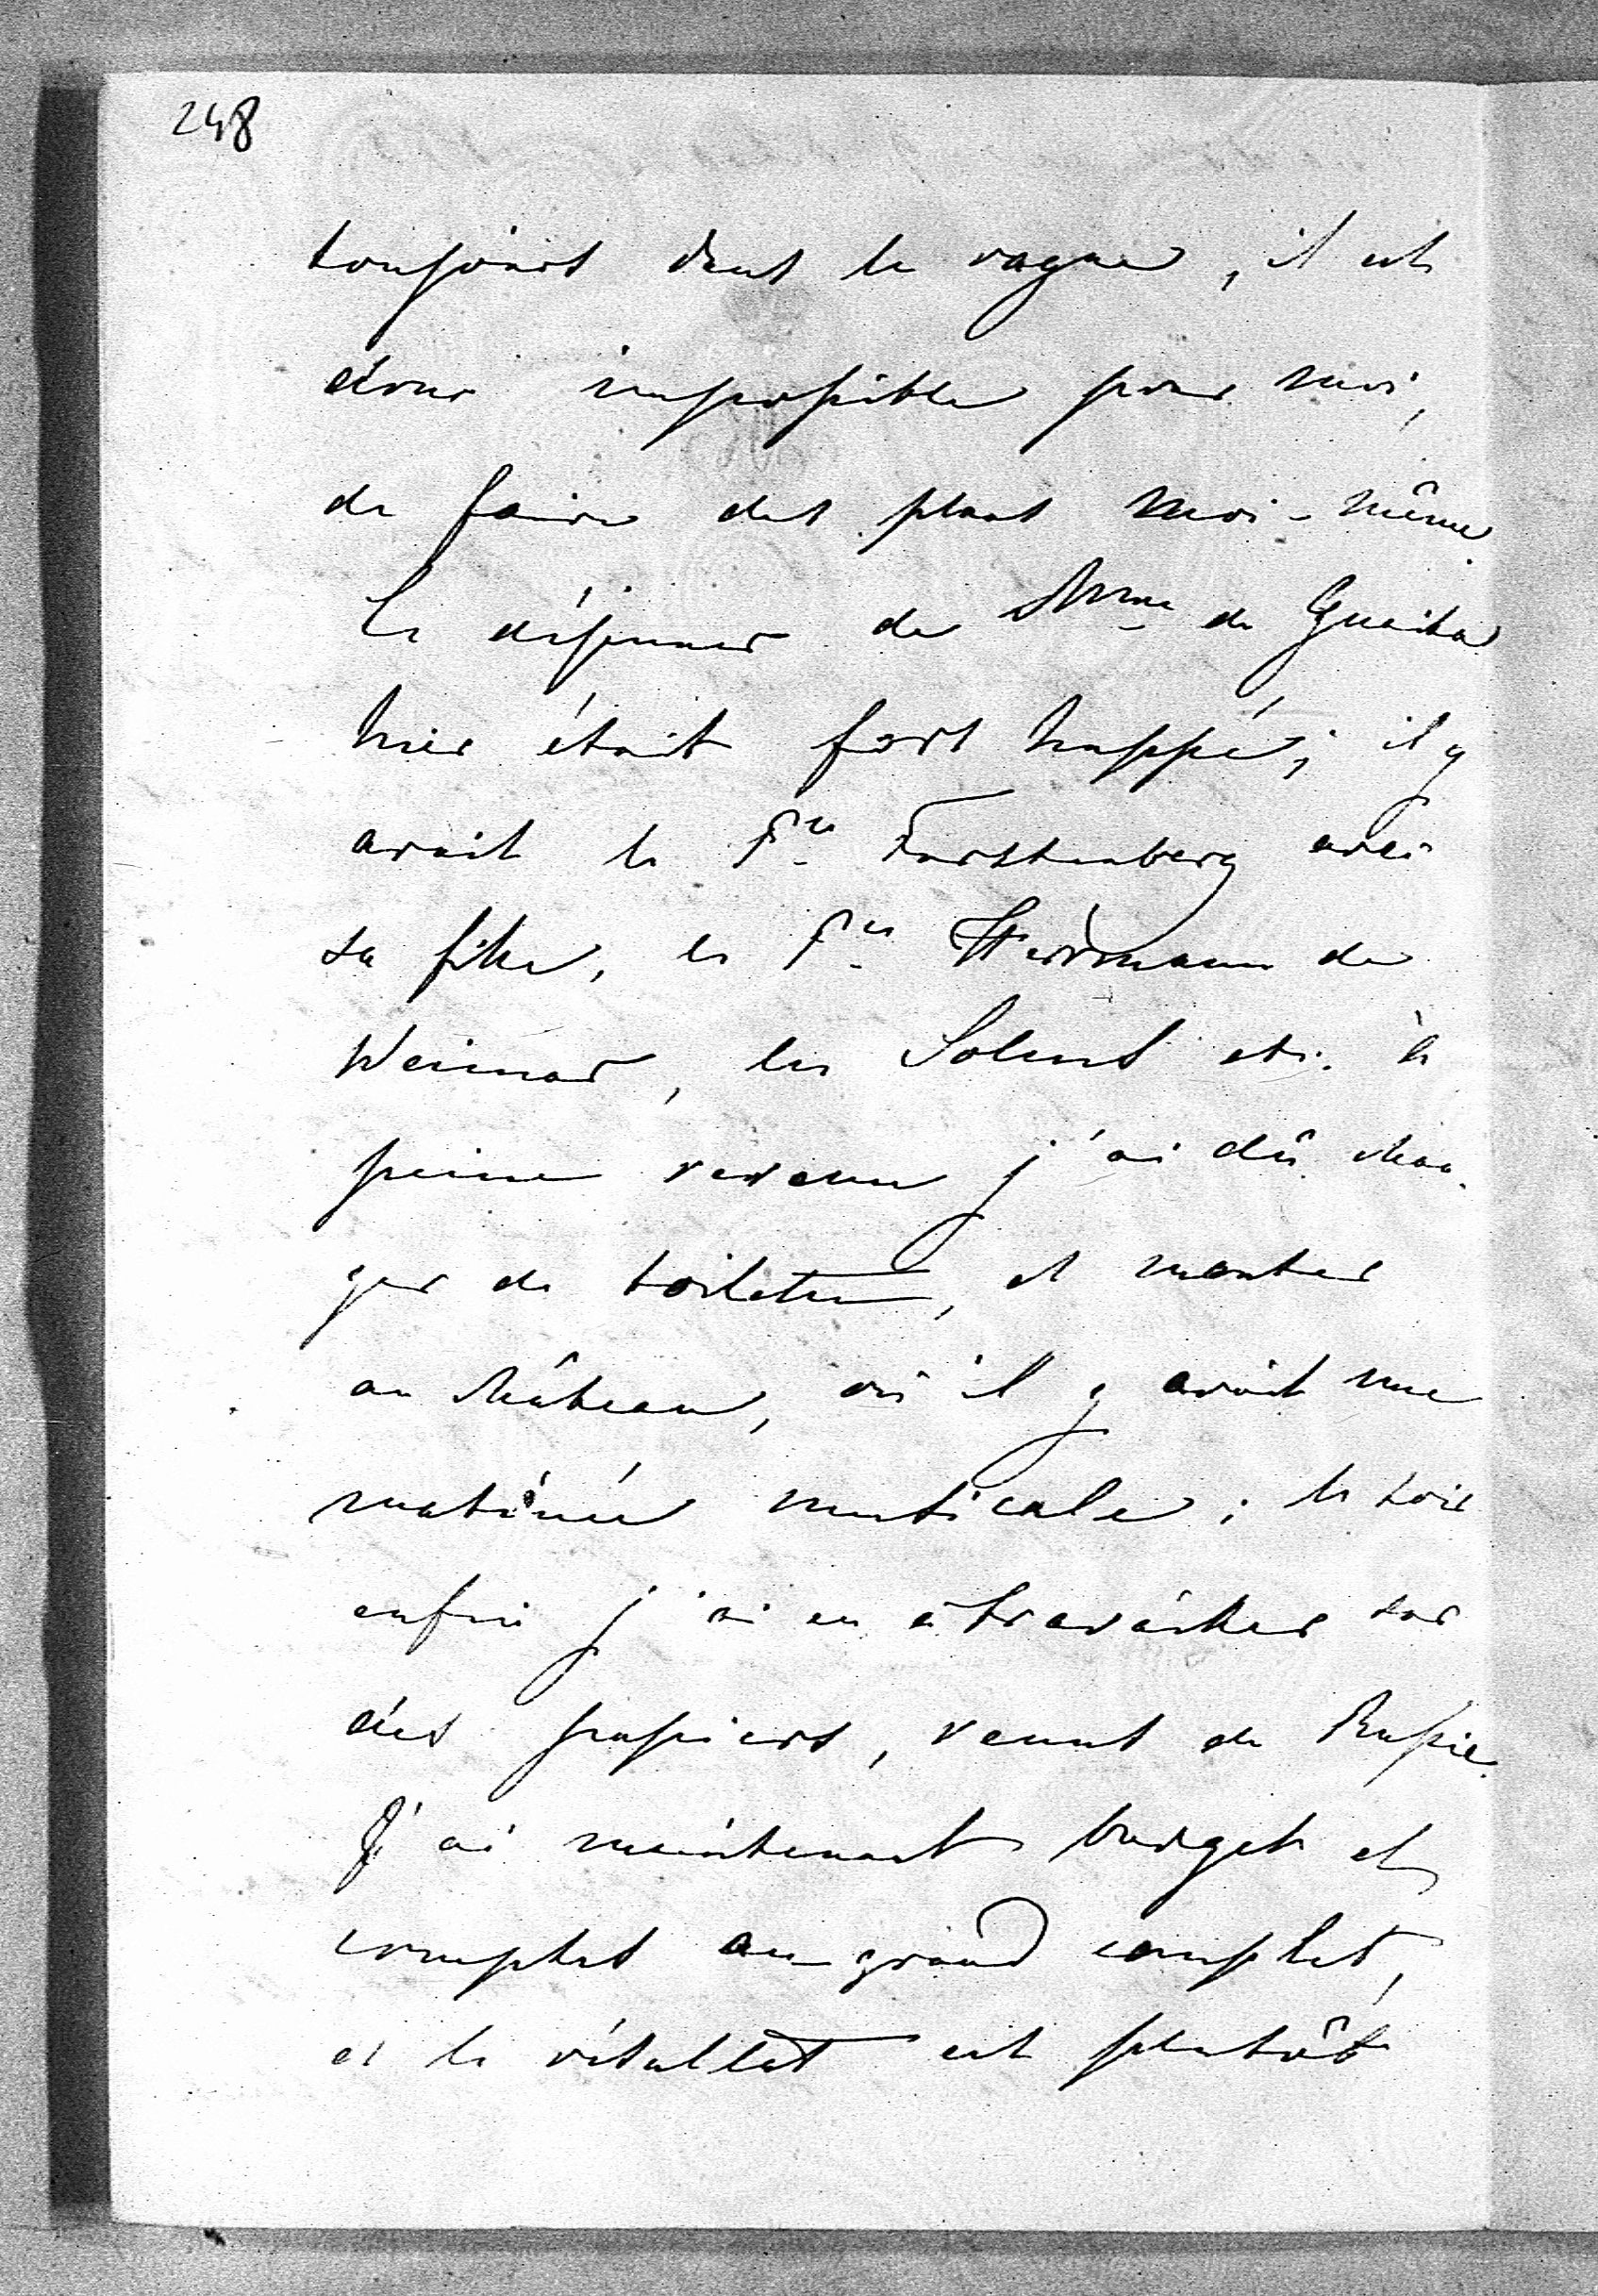 248
toujours dans le vague, il est
donc impossible pour moi,
de faire des plans moi-même.
Le déjeuner de Mme de Guaita
hier était fort huppé; il y
avait la Psse Furstenberg avec
sa fille, la Psse Herrmann de
Weimar, les Solms etc. à
peine revenu j'ai dû chan-
ger de toilette, et monter
au château, où il y avait une
matinée musicale; le soir
enfin j'ai eu à travailler sur
des papiers, venus de Russie.
J'ai maintenant budget et
comptes au grand complet,
et le résultat est plutôt